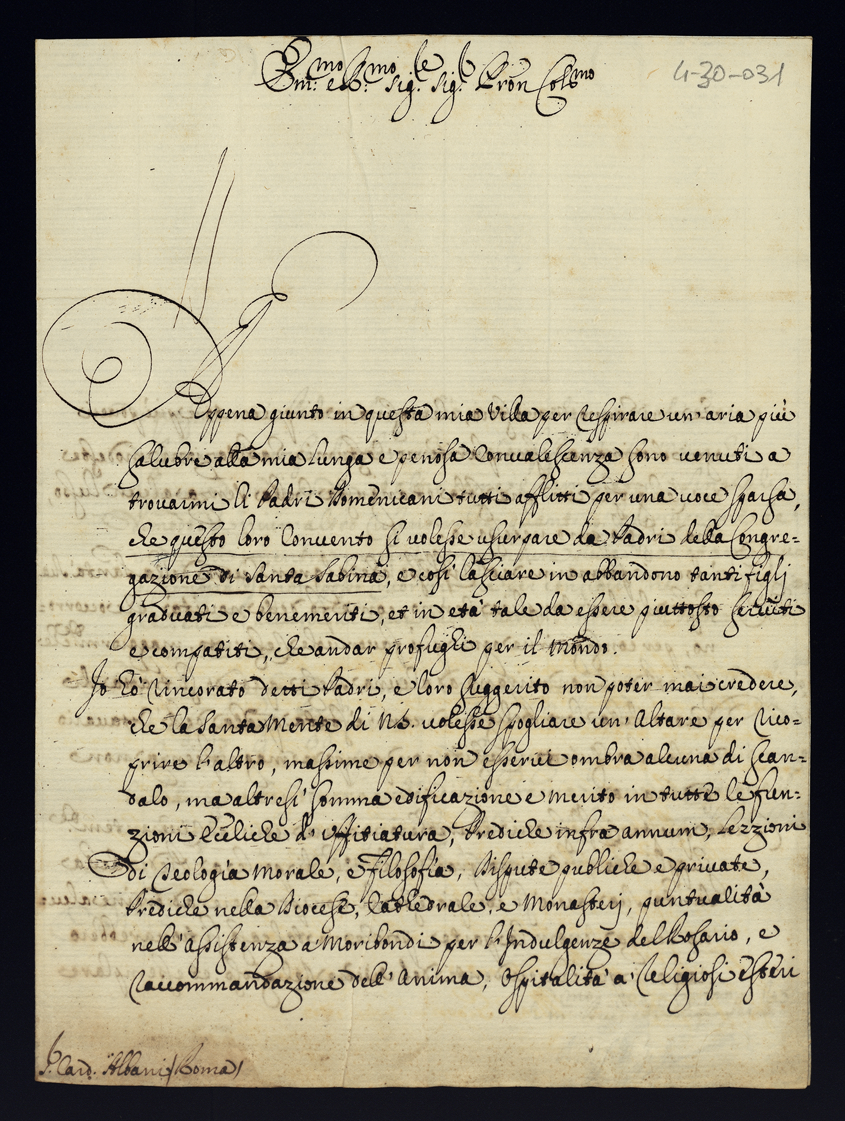 Em:mo e R:mo Sig:re Sig:r Pron Col:mo
4-30-031
Appena giunto in questa mia Villa per respirare un'aria più
salubre alla mia lunga e penosa Convalescenza sono venuti a
trovarmi li Padri Domenicani tutti afflitti per una voce sparsa,
che questo loro Convento si volesse usurpare da Padri della Congre=
gazione di Santa Sabina, e così lasciare in abbandono tanti figlj
graduati e benemeriti, et in età tale da essere piuttosto serviti
e compatiti, che andar profughi per il Mondo.
Io hò rincorato detti Padri, e loro suggerito non poter mai credere,
che la Santa Mente di N.S. volesse spogliare un'Altare per rico=
prire l'altro, massime per non esservi ombra alcuna di scan=
dalo, ma altresì somma edificazione e merito in tutte le fun=
zioni Eccl:iche d'Uffitiatura, Prediche infra annum, Lezzioni
di Teologia Morale, e Filosofia, Dispute publiche e private,
Prediche nella Diocesi, Cathedrale, e Monasterj, puntualità
nell'Assistenza a' Moribondi per l'Indulgenze del Rosario, e
raccommandazione dell'Anima, Ospitalità a' Religiosi esteri
S. Card. Albani (Roma)